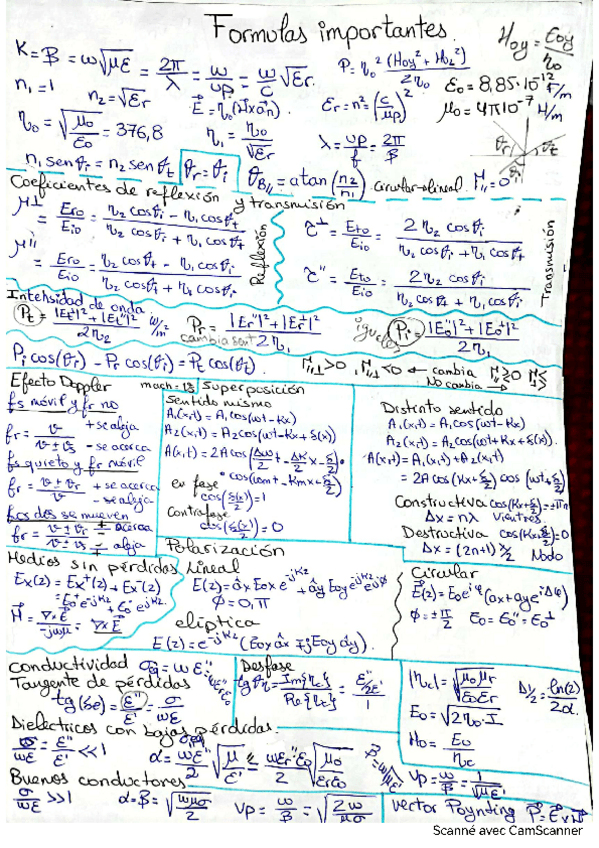 Formulas importantes.
H₀y = E₀y / η₀
K = β = ω√με = 2π/λ = ω/υp = ω/c √εr.
P = η₀² (H₀y² + H₀z²) / 2η₀
ε₀ = 8,85·10⁻¹² F/m
n₁ = 1   n₂ = √εr
εr = n² (c/μp)²
μ₀ = 4π10⁻⁷ H/m
η₀ = √(μ₀/ε₀) = 376,8
η₁ = η₀/√εr
λ = υp/f = 2π/β
n₁ sen θi = n₂ sen θt
θr = θi
θB// = atan(n₂/n₁) circular→lineal Γ// = 0
Coeficientes de reflexión y transmisión
Γ⊥ = Er₀/Ei₀ = (η₂ cosθi - η₁ cosθt) / (η₂ cosθi + η₁ cosθt)
Γ'' = Er₀/Ei₀ = (η₂ cosθt - η₁ cosθi) / (η₂ cosθt + η₁ cosθi)
Reflexión
τ⊥ = Et₀/Ei₀ = 2η₂ cosθi / (η₂ cosθi + η₁ cosθt)
τ'' = Et₀/Ei₀ = 2η₂ cosθi / (η₂ cosθt + η₁ cosθi)
Transmisión
Intensidad de onda
Pt = (|Et''|² + |Et⊥|²) / 2η₂ W/m²
Pr = (|Er''|² + |Er⊥|²) / 2η₁
Pi = (|E₀''|² + |E₀⊥|²) / 2η₁
Pi cos(θi) - Pr cos(θi) = Pt cos(θt).
cambia
No cambia
Efecto Doppler
fs móvil y fr no
fr = υ / (υ ± υs) + se aleja - se acerca
fs quieto y fr móvil
fr = (υ ± υr) / υ + se acerca - se aleja
Los dos se mueven
fr = (υ ± υr) / (υ ± υs) acerca aleja
Superposición
Sentido mismo
A₁(x,t) = A₁cos(ωt-Kx)
A₂(x,t) = A₂cos(ωt-Kx+δ(x))
A(x,t) = 2A cos(Δω/2 t - ΔK/2 x - δ/2)·
·cos(ωm t - Kmx + δ/2)
en fase
cos(δ(x)/2) = 1
Contrafase
cos(δ(x)/2) = 0
Distinto sentido
A₁(x,t) = A₁cos(ωt-Kx)
A₂(x,t) = A₂cos(ωt+Kx+δ(x)).
A(x,t) = A₁(x,t) + A₂(x,t)
= 2A cos(Kx+δ/2) cos(ωt+δ/2)
Constructiva cos(Kx+δ/2) = ±πn
Δx = nλ Vientres.
Destructiva cos(Kx+δ/2) = 0
Δx = (2n+1) λ/2 Nodo
Polarización
Medios sin pérdidas
Ex(z) = Ex⁺(z) + Ex⁻(z)
= E₀⁺e^-jKz + E₀⁻e^jKz.
H = ∇×E / -jωμ
Lineal
E(z) = âx E₀x e^-jKz + ây E₀y e^-jKz e^jφ
φ = 0, π
elíptica
E(z) = e^-jKz (E₀x âx ∓ jE₀y ây).
Circular
E(z) = E₀ e^jφ (ax + ay e^jΔφ)
φ = ± π/2   E₀ = E₀'' = E₀⊥
Conductividad
Tangente de pérdidas
tg(δe) = ε''/ε' = σ/ωε
Desfase
tg θη = Im{ηc}/Re{ηc} = ε''/2ε' / 1
|ηc| = √(μ₀μr/ε₀εr)
Δ½ = ln(2)/2α.
E₀ = √(2η₀·I)
H₀ = E₀/ηc
υp = ω/β = 1/√με'
Dielectricos con bajas pérdidas.
σ/ωε = ε''/ε' << 1
α = ωε''/2 √(μ/ε') = ωεr''ε₀/2 √(μ₀/εrε₀)
β = ω√με'
Buenos conductores
σ/ωε >> 1
α = β = √(ωμσ/2)
υp = ω/β = √(2ω/μσ)
vector Poynting P = E×H
Scanné avec CamScanner